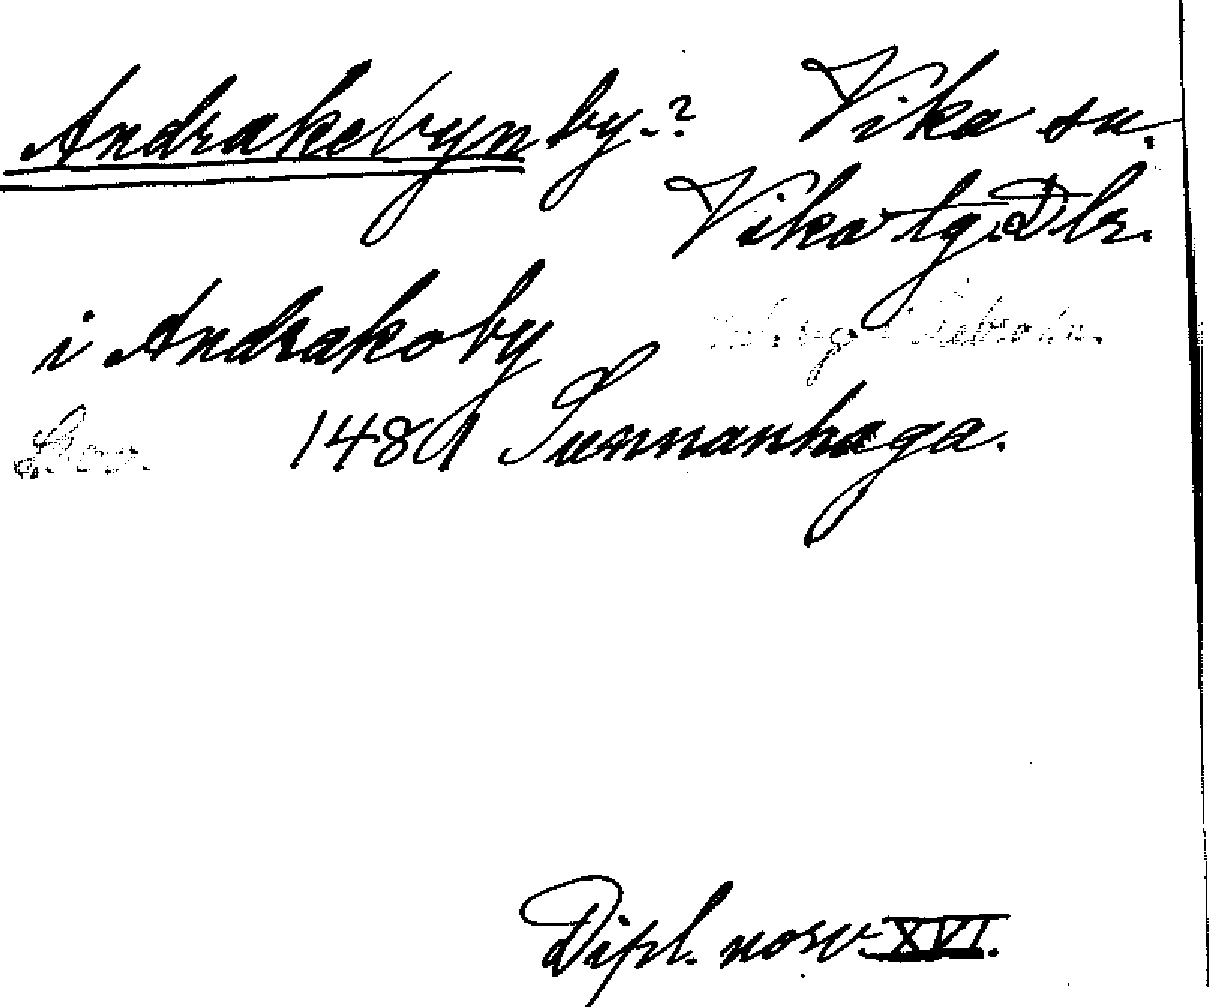 Andrakebyn by.? Vika sn.
Vika tg. Dlr.
i Andrakoby
1481 Sunnanhaga.
Dipl. norv. XVI.